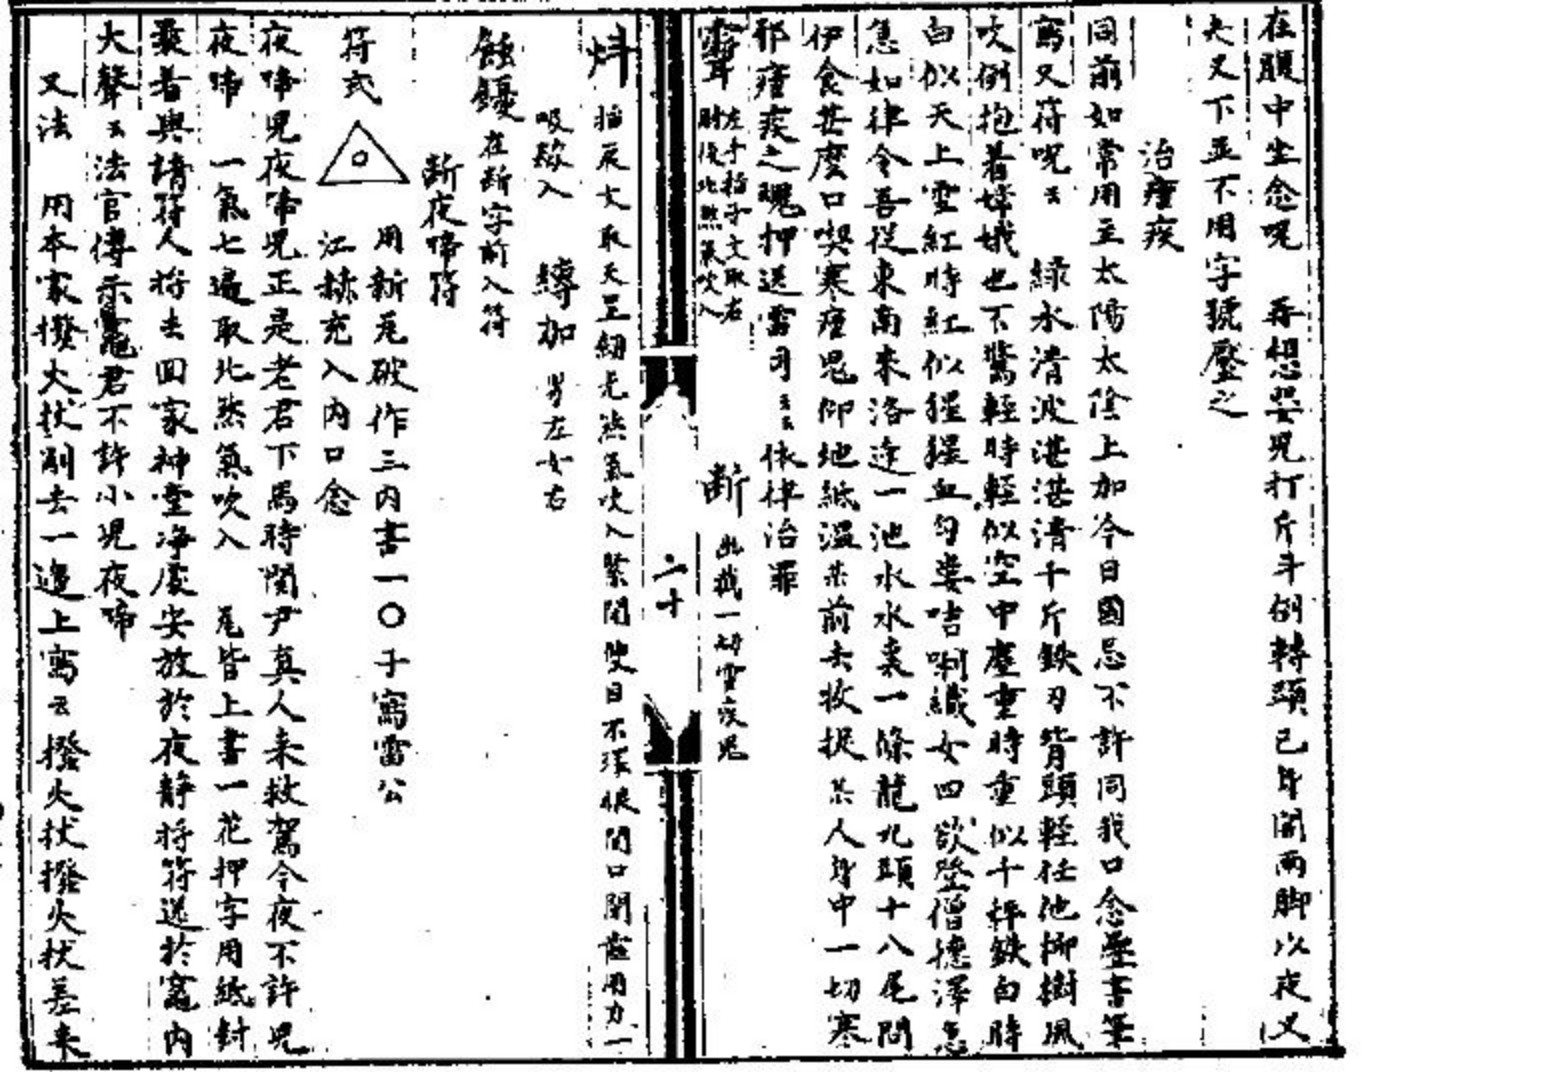 在腹中坐念呪 再想嬰兒打斤斗倒轉頭已身開兩脚以夜叉
夫叉下並不用字號壓之
治瘧疾
同前如常用主太陽太陰上加今日國忌不許同我口念壘書筆
寫又符呪云 綠水清波湛湛清千斤鉄刃背頭輕任他柳樹風
吹倒抱着嫦娥也不驚輕時輕似空中塵重時重似千秤鉄白時
白似天上雪紅時紅似猩猩血匀婁咭唎織女四欲登僧德澤急
急如律令吾從東南來洛逢一池水水裏一條龍九頭十八尾問
伊食甚麽口喫寒瘧鬼仰地紙温某前去收捉某人身中一切寒
邪瘧疾之魂押送雷司云云依律治罪
左手指子文取右
肘後北煞氣吹入 断 出截一切雪疫鬼
二十
炓 指辰文取天罡綱尤煞氣吹入緊閉使目不深限閉口閉齒用力一
吸
入 縛加 男左女右
蝕鑀 在断字前入符
断夜啼符
符式 用新瓦破作三内書一〇于寫雷公
江
充入内口念
夜啼兒夜啼兒正是老君下馬時閏尹真人來救駕今夜不許兒
夜啼 一氣七遍取北煞氣吹入 尾皆上書一花押字用紙封
裹着與請符人將去回家神堂净處安放於夜静將符送於竈内
大聲云法官傳示竈君不許小兒夜啼
又法 用本家撥火杖削去一邊上寫云撥火杖撥火杖差來